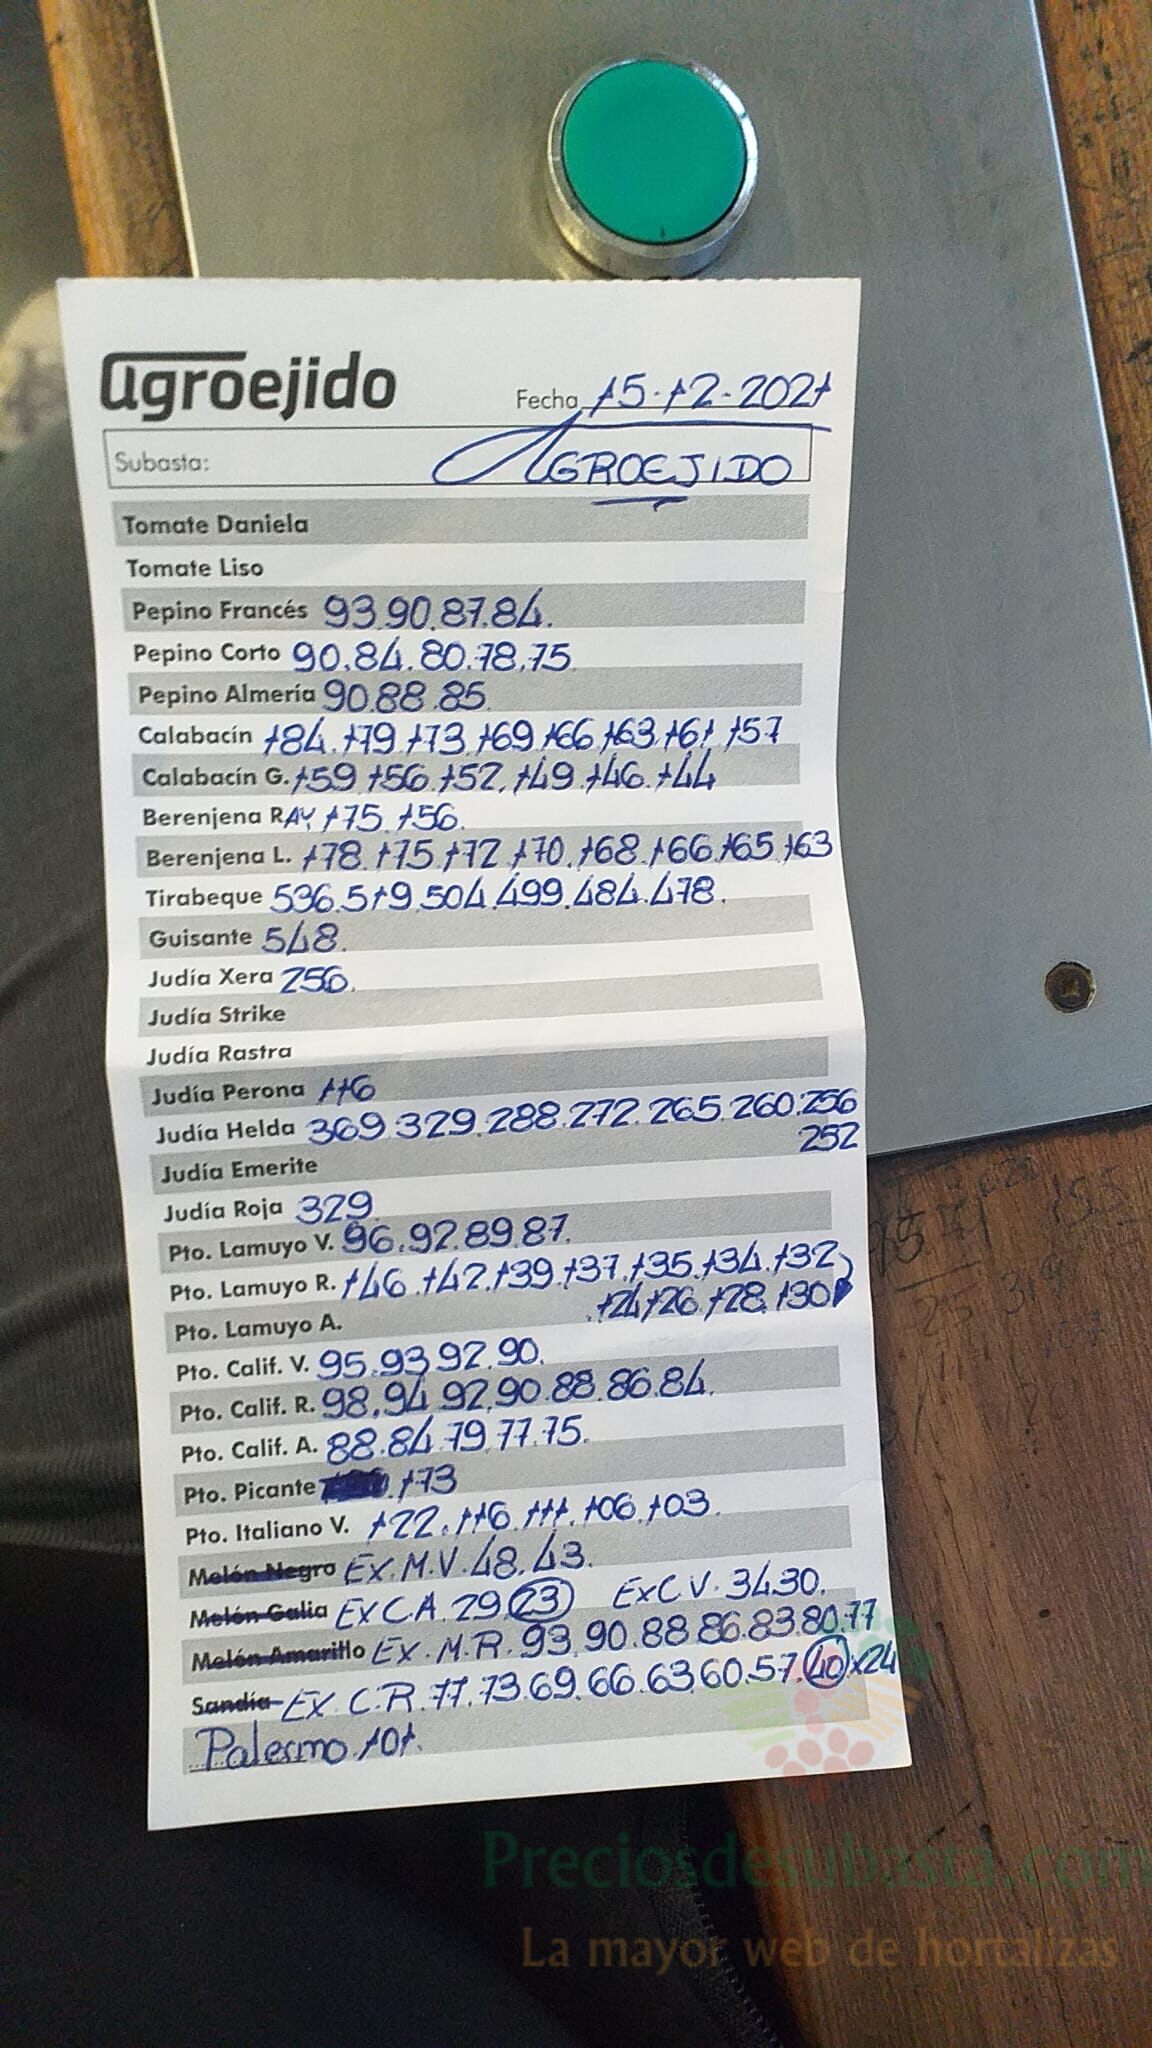 agroejido
Fecha 15-12-2021
Subasta: AGROEJIDO
Tomate Daniela
Tomate Liso
Pepino Francés 93.90.87.84.
Pepino Corto 90.84.80.78.75
Pepino Almería 90.88.85.
Calabacín 184.179.173.169.166.163.161.157
Calabacín G. 159.156.152.149.146.144
Berenjena RAY 175.156.
Berenjena L. 178.175.172.170.168.166.165.163
Tirabeque 536.519.504.499.484.478.
Guisante 548.
Judía Xera 256.
Judía Strike
Judía Rastra
Judía Perona 116
Judía Helda 369.329.288.272.265.260.256
252
Judía Emerite
Judía Roja 329
Pto. Lamuyo V. 96.92.89.87.
Pto. Lamuyo R. 146.142.139.137.135.134.132
.124.126.128.130
Pto. Lamuyo A.
Pto. Calif. V. 95.93.92.90.
Pto. Calif. R. 98.94.92.90.88.86.84.
Pto. Calif. A. 88.84.79.77.75.
Pto. Picante .173
Pto. Italiano V. 122.116.111.106.103.
Melón Negro Ex.M.V.48.43.
Melón Galia Ex C.A. 29 23 Ex C.V. 34.30.
Melón Amarillo Ex.M.R. 93.90.88.86.83.80.77
Sandía Ex.C.R. 77.73.69.66.63.60.57.40x24
Palermo 101.
Preciosdesubasta.com
La mayor web de hortalizas